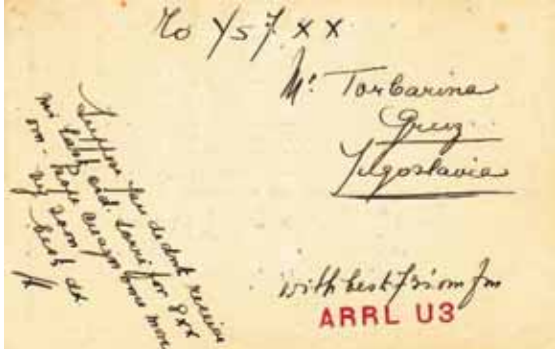 To YS7XX
Mr. Torbarina
Gruz
Jugoslavia
Suppose you didnt receive
mi last crd.
om - hope cuagn some more
vy soon
best dx
with best 73 om fm
ARRL U3